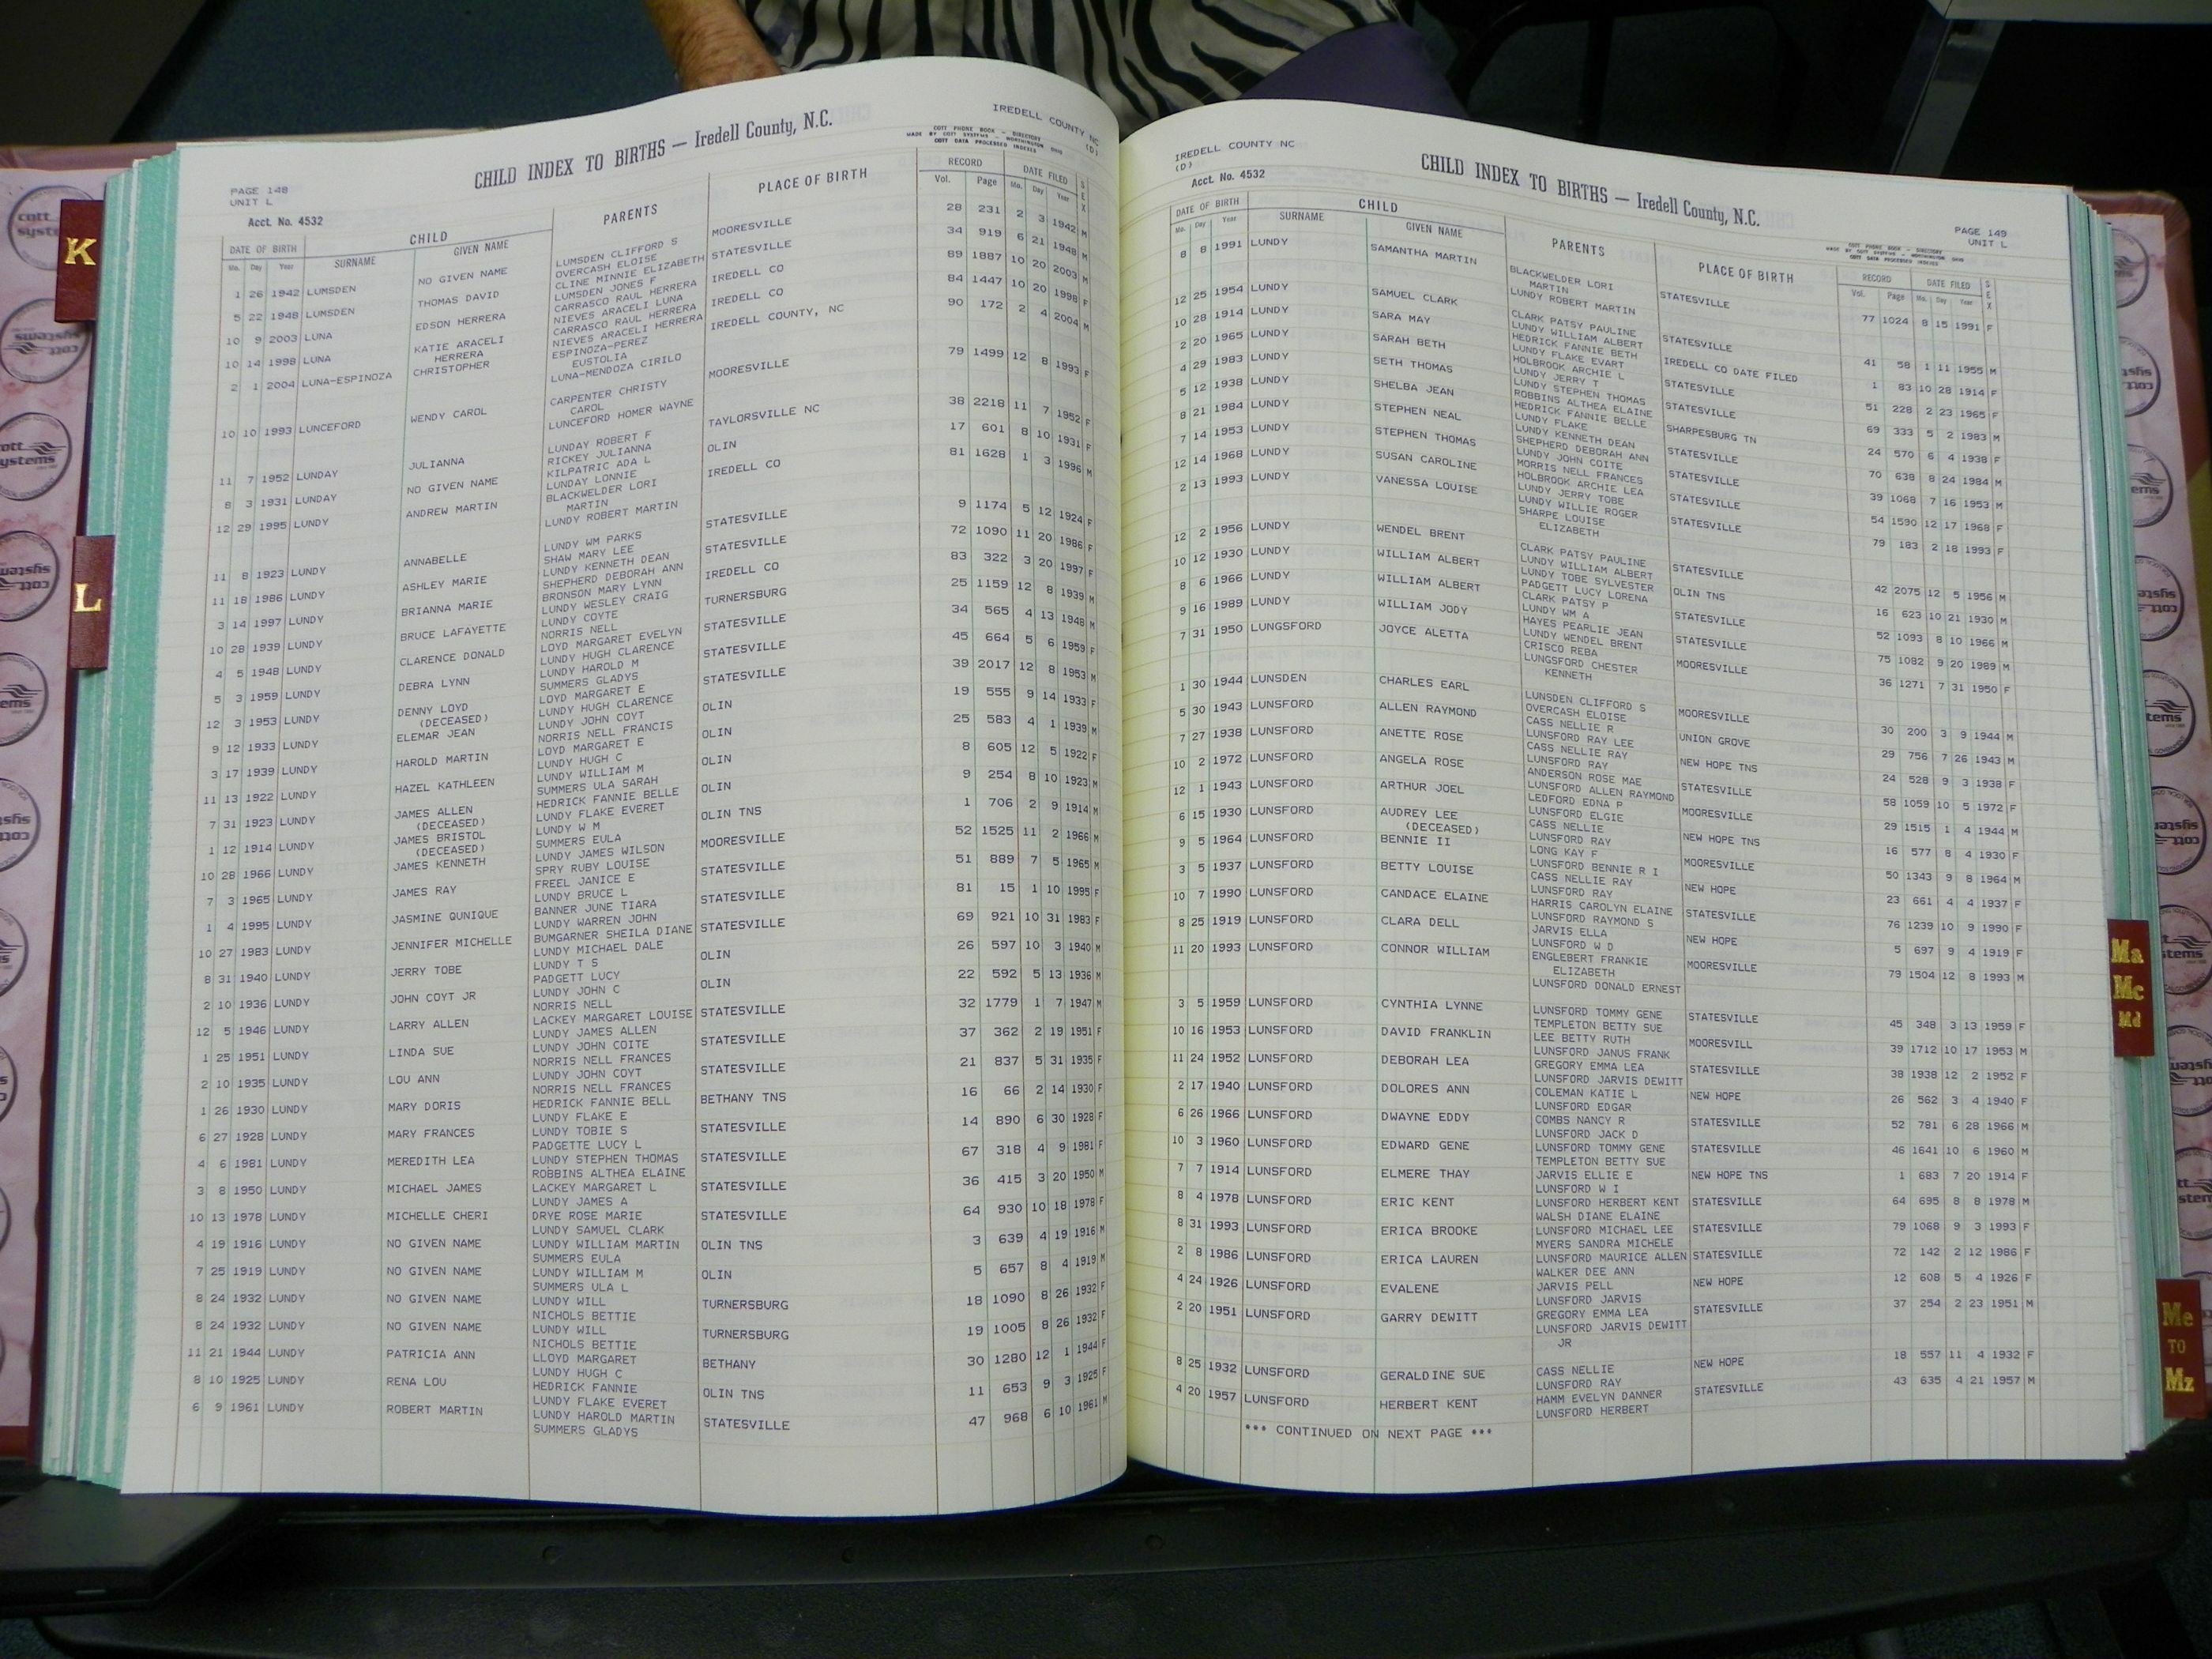 K
L
IREDELL COUNTY NC
(D)
COTT PHONE BOOK — DIRECTORY
MADE BY COTT SYSTEMS — WORTHINGTON OHIO
COTT DATA PROCESSED INDEXES
CHILD INDEX TO BIRTHS — Iredell County, N.C.
PAGE 148
UNIT L
Acct. No. 4532
DATE OF BIRTH CHILD PARENTS PLACE OF BIRTH RECORD DATE FILED SEX
Mo. Day Year SURNAME GIVEN NAME Vol. Page Mo. Day Year
1 26 1942 LUMSDEN NO GIVEN NAME LUMSDEN CLIFFORD S MOORESVILLE 28 231 2 3 1942 M
OVERCASH ELOISE
5 22 1948 LUMSDEN THOMAS DAVID CLINE MINNIE ELIZABETH STATESVILLE 34 919 6 21 1948 M
LUMSDEN JONES F
10 9 2003 LUNA EDSON HERRERA CARRASCO RAUL HERRERA IREDELL CO 89 1887 10 20 2003 M
NIEVES ARACELI LUNA
10 14 1998 LUNA KATIE ARACELI CARRASCO RAUL HERRERA IREDELL CO 84 1447 10 20 1998 F
HERRERA NIEVES ARACELI HERRERA
2 1 2004 LUNA-ESPINOZA CHRISTOPHER ESPINOZA-PEREZ IREDELL COUNTY, NC 90 172 2 4 2004 M
EUSTOLIA
LUNA-MENDOZA CIRILO
10 10 1993 LUNCEFORD WENDY CAROL CARPENTER CHRISTY MOORESVILLE 79 1499 12 8 1993 F
CAROL
LUNCEFORD HOMER WAYNE
11 7 1952 LUNDAY JULIANNA LUNDAY ROBERT F TAYLORSVILLE NC 38 2218 11 7 1952 F
RICKEY JULIANNA
8 3 1931 LUNDAY NO GIVEN NAME KILPATRIC ADA L OLIN 17 601 8 10 1931 F
LUNDAY LONNIE
12 29 1995 LUNDY ANDREW MARTIN BLACKWELDER LORI IREDELL CO 81 1628 1 3 1996 M
MARTIN
LUNDY ROBERT MARTIN
11 8 1923 LUNDY ANNABELLE LUNDY WM PARKS STATESVILLE 9 1174 5 12 1924 F
SHAW MARY LEE
11 18 1986 LUNDY ASHLEY MARIE LUNDY KENNETH DEAN STATESVILLE 72 1090 11 20 1986 F
SHEPHERD DEBORAH ANN
3 14 1997 LUNDY BRIANNA MARIE BRONSON MARY LYNN IREDELL CO 83 322 3 20 1997 F
LUNDY WESLEY CRAIG
10 28 1939 LUNDY BRUCE LAFAYETTE LUNDY COYTE TURNERSBURG 25 1159 12 8 1939 M
NORRIS NELL
4 5 1948 LUNDY CLARENCE DONALD LOYD MARGARET EVELYN STATESVILLE 34 565 4 13 1948 M
LUNDY HUGH CLARENCE
5 3 1959 LUNDY DEBRA LYNN LUNDY HAROLD M STATESVILLE 45 664 5 6 1959 F
SUMMERS GLADYS
12 3 1953 LUNDY DENNY LOYD LOYD MARGARET E STATESVILLE 39 2017 12 8 1953 M
(DECEASED) LUNDY HUGH CLARENCE
9 12 1933 LUNDY ELEMAR JEAN LUNDY JOHN COYT OLIN 19 555 9 14 1933 F
NORRIS NELL FRANCIS
3 17 1939 LUNDY HAROLD MARTIN LOYD MARGARET E OLIN 25 583 4 1 1939 M
LUNDY HUGH C
11 13 1922 LUNDY HAZEL KATHLEEN LUNDY WILLIAM M OLIN 8 605 12 5 1922 F
SUMMERS ULA SARAH
7 31 1923 LUNDY JAMES ALLEN HEDRICK FANNIE BELLE OLIN 9 254 8 10 1923 M
(DECEASED) LUNDY FLAKE EVERET
1 12 1914 LUNDY JAMES BRISTOL LUNDY W M OLIN TNS 1 706 2 9 1914 M
(DECEASED) SUMMERS EULA
10 28 1966 LUNDY JAMES KENNETH LUNDY JAMES WILSON MOORESVILLE 52 1525 11 2 1966 M
SPRY RUBY LOUISE
7 3 1965 LUNDY JAMES RAY FREEL JANICE E STATESVILLE 51 889 7 5 1965 M
LUNDY BRUCE L
1 4 1995 LUNDY JASMINE QUNIQUE BANNER JUNE TIARA STATESVILLE 81 15 1 10 1995 F
LUNDY WARREN JOHN
10 27 1983 LUNDY JENNIFER MICHELLE BUMGARNER SHEILA DIANE STATESVILLE 69 921 10 31 1983 F
LUNDY MICHAEL DALE
8 31 1940 LUNDY JERRY TOBE LUNDY T S OLIN 26 597 10 3 1940 M
PADGETT LUCY
2 10 1936 LUNDY JOHN COYT JR LUNDY JOHN C OLIN 22 592 5 13 1936 M
NORRIS NELL
12 5 1946 LUNDY LARRY ALLEN LACKEY MARGARET LOUISE STATESVILLE 32 1779 1 7 1947 M
LUNDY JAMES ALLEN
1 25 1951 LUNDY LINDA SUE LUNDY JOHN COITE STATESVILLE 37 362 2 19 1951 F
NORRIS NELL FRANCES
2 10 1935 LUNDY LOU ANN LUNDY JOHN COYT STATESVILLE 21 837 5 31 1935 F
NORRIS NELL FRANCES
1 26 1930 LUNDY MARY DORIS HEDRICK FANNIE BELL BETHANY TNS 16 66 2 14 1930 F
LUNDY FLAKE E
6 27 1928 LUNDY MARY FRANCES LUNDY TOBIE S STATESVILLE 14 890 6 30 1928 F
PADGETTE LUCY L
4 6 1981 LUNDY MEREDITH LEA LUNDY STEPHEN THOMAS STATESVILLE 67 318 4 9 1981 F
ROBBINS ALTHEA ELAINE
3 8 1950 LUNDY MICHAEL JAMES LACKEY MARGARET L STATESVILLE 36 415 3 20 1950 M
LUNDY JAMES A
10 13 1978 LUNDY MICHELLE CHERI DRYE ROSE MARIE STATESVILLE 64 930 10 18 1978 F
LUNDY SAMUEL CLARK
4 19 1916 LUNDY NO GIVEN NAME LUNDY WILLIAM MARTIN OLIN TNS 3 639 4 19 1916 M
SUMMERS EULA
7 25 1919 LUNDY NO GIVEN NAME LUNDY WILLIAM M OLIN 5 657 8 4 1919 M
SUMMERS ULA L
8 24 1932 LUNDY NO GIVEN NAME LUNDY WILL TURNERSBURG 18 1090 8 26 1932 F
NICHOLS BETTIE
8 24 1932 LUNDY NO GIVEN NAME LUNDY WILL TURNERSBURG 19 1005 8 26 1932 F
NICHOLS BETTIE
11 21 1944 LUNDY PATRICIA ANN LLOYD MARGARET BETHANY 30 1280 12 1 1944 F
LUNDY HUGH C
8 10 1925 LUNDY RENA LOU HEDRICK FANNIE OLIN TNS 11 653 9 3 1925 F
LUNDY FLAKE EVERET
6 9 1961 LUNDY ROBERT MARTIN LUNDY HAROLD MARTIN STATESVILLE 47 968 6 10 1961 M
SUMMERS GLADYS
IREDELL COUNTY NC
(D)
Acct. No. 4532
CHILD INDEX TO BIRTHS — Iredell County, N.C.
PAGE 149
UNIT L
DATE OF BIRTH CHILD PARENTS PLACE OF BIRTH RECORD DATE FILED SEX
Mo. Day Year SURNAME GIVEN NAME Vol. Page Mo. Day Year
8 8 1991 LUNDY SAMANTHA MARTIN BLACKWELDER LORI STATESVILLE 77 1024 8 15 1991 F
MARTIN
LUNDY ROBERT MARTIN
12 25 1954 LUNDY SAMUEL CLARK CLARK PATSY PAULINE STATESVILLE 41 58 1 11 1955 M
LUNDY WILLIAM ALBERT
10 28 1914 LUNDY SARA MAY HEDRICK FANNIE BETH IREDELL CO DATE FILED 1 83 10 28 1914 F
LUNDY FLAKE EVART
2 20 1965 LUNDY SARAH BETH HOLBROOK ARCHIE L STATESVILLE 51 228 2 23 1965 F
LUNDY JERRY T
4 29 1983 LUNDY SETH THOMAS LUNDY STEPHEN THOMAS STATESVILLE 69 333 5 2 1983 M
ROBBINS ALTHEA ELAINE
5 12 1938 LUNDY SHELBA JEAN HEDRICK FANNIE BELLE SHARPESBURG TN 24 570 6 4 1938 F
LUNDY FLAKE
8 21 1984 LUNDY STEPHEN NEAL LUNDY KENNETH DEAN STATESVILLE 70 638 8 24 1984 M
SHEPHERD DEBORAH ANN
7 14 1953 LUNDY STEPHEN THOMAS LUNDY JOHN COITE STATESVILLE 39 1068 7 16 1953 M
MORRIS NELL FRANCES
12 14 1968 LUNDY SUSAN CAROLINE HOLBROOK ARCHIE LEA STATESVILLE 54 1590 12 17 1968 F
LUNDY JERRY TOBE
2 13 1993 LUNDY VANESSA LOUISE LUNDY WILLIE ROGER 79 183 2 18 1993 F
SHARPE LOUISE
ELIZABETH
12 2 1956 LUNDY WENDEL BRENT CLARK PATSY PAULINE STATESVILLE 42 2075 12 5 1956 M
LUNDY WILLIAM ALBERT
10 12 1930 LUNDY WILLIAM ALBERT LUNDY TOBE SYLVESTER OLIN TNS 16 623 10 21 1930 M
PADGETT LUCY LORENA
8 6 1966 LUNDY WILLIAM ALBERT CLARK PATSY P STATESVILLE 52 1093 8 10 1966 M
LUNDY WM A
9 16 1989 LUNDY WILLIAM JODY HAYES PEARLIE JEAN STATESVILLE 75 1082 9 20 1989 M
LUNDY WENDEL BRENT
7 31 1950 LUNGSFORD JOYCE ALETTA CRISCO REBA MOORESVILLE 36 1271 7 31 1950 F
LUNGSFORD CHESTER
KENNETH
1 30 1944 LUNSDEN CHARLES EARL LUNSDEN CLIFFORD S MOORESVILLE 30 200 3 9 1944 M
OVERCASH ELOISE
5 30 1943 LUNSFORD ALLEN RAYMOND CASS NELLIE R UNION GROVE 29 756 7 26 1943 M
LUNSFORD RAY LEE
7 27 1938 LUNSFORD ANETTE ROSE CASS NELLIE RAY NEW HOPE TNS 24 528 9 3 1938 F
LUNSFORD RAY
10 2 1972 LUNSFORD ANGELA ROSE ANDERSON ROSE MAE STATESVILLE 58 1059 10 5 1972 F
LUNSFORD ALLEN RAYMOND
12 1 1943 LUNSFORD ARTHUR JOEL LEDFORD EDNA P MOORESVILLE 29 1515 1 4 1944 M
LUNSFORD ELGIE
6 15 1930 LUNSFORD AUDREY LEE CASS NELLIE NEW HOPE TNS 16 577 8 4 1930 F
(DECEASED) LUNSFORD RAY
9 5 1964 LUNSFORD BENNIE II LONG KAY F MOORESVILLE 50 1343 9 8 1964 M
LUNSFORD BENNIE R I
3 5 1937 LUNSFORD BETTY LOUISE CASS NELLIE RAY NEW HOPE 23 661 4 4 1937 F
LUNSFORD RAY
10 7 1990 LUNSFORD CANDACE ELAINE HARRIS CAROLYN ELAINE STATESVILLE 76 1239 10 9 1990 F
LUNSFORD RAYMOND S
8 25 1919 LUNSFORD CLARA DELL JARVIS ELLA NEW HOPE 5 697 9 4 1919 F
LUNSFORD W D
11 20 1993 LUNSFORD CONNOR WILLIAM ENGLEBERT FRANKIE MOORESVILLE 79 1504 12 8 1993 M
ELIZABETH
LUNSFORD DONALD ERNEST
3 5 1959 LUNSFORD CYNTHIA LYNNE LUNSFORD TOMMY GENE STATESVILLE 45 348 3 13 1959 F
TEMPLETON BETTY SUE
10 16 1953 LUNSFORD DAVID FRANKLIN LEE BETTY RUTH MOORESVILL 39 1712 10 17 1953 M
LUNSFORD JANUS FRANK
11 24 1952 LUNSFORD DEBORAH LEA GREGORY EMMA LEA STATESVILLE 38 1938 12 2 1952 F
LUNSFORD JARVIS DEWITT
2 17 1940 LUNSFORD DOLORES ANN COLEMAN KATIE L NEW HOPE 26 562 3 4 1940 F
LUNSFORD EDGAR
6 26 1966 LUNSFORD DWAYNE EDDY COMBS NANCY R STATESVILLE 52 781 6 28 1966 M
LUNSFORD JACK D
10 3 1960 LUNSFORD EDWARD GENE LUNSFORD TOMMY GENE STATESVILLE 46 1641 10 6 1960 M
TEMPLETON BETTY SUE
7 7 1914 LUNSFORD ELMERE THAY JARVIS ELLIE E NEW HOPE TNS 1 683 7 20 1914 F
LUNSFORD W I
8 4 1978 LUNSFORD ERIC KENT LUNSFORD HERBERT KENT STATESVILLE 64 695 8 8 1978 M
WALSH DIANE ELAINE
8 31 1993 LUNSFORD ERICA BROOKE LUNSFORD MICHAEL LEE STATESVILLE 79 1068 9 3 1993 F
MYERS SANDRA MICHELE
2 8 1986 LUNSFORD ERICA LAUREN LUNSFORD MAURICE ALLEN STATESVILLE 72 142 2 12 1986 F
WALKER DEE ANN
4 24 1926 LUNSFORD EVALENE JARVIS PELL NEW HOPE 12 608 5 4 1926 F
LUNSFORD JARVIS
2 20 1951 LUNSFORD GARRY DEWITT GREGORY EMMA LEA STATESVILLE 37 254 2 23 1951 M
LUNSFORD JARVIS DEWITT
JR
8 25 1932 LUNSFORD GERALDINE SUE CASS NELLIE NEW HOPE 18 557 11 4 1932 F
LUNSFORD RAY
4 20 1957 LUNSFORD HERBERT KENT HAMM EVELYN DANNER STATESVILLE 43 635 4 21 1957 M
LUNSFORD HERBERT
*** CONTINUED ON NEXT PAGE ***
Ma
Mc
Md
Me
TO
Mz